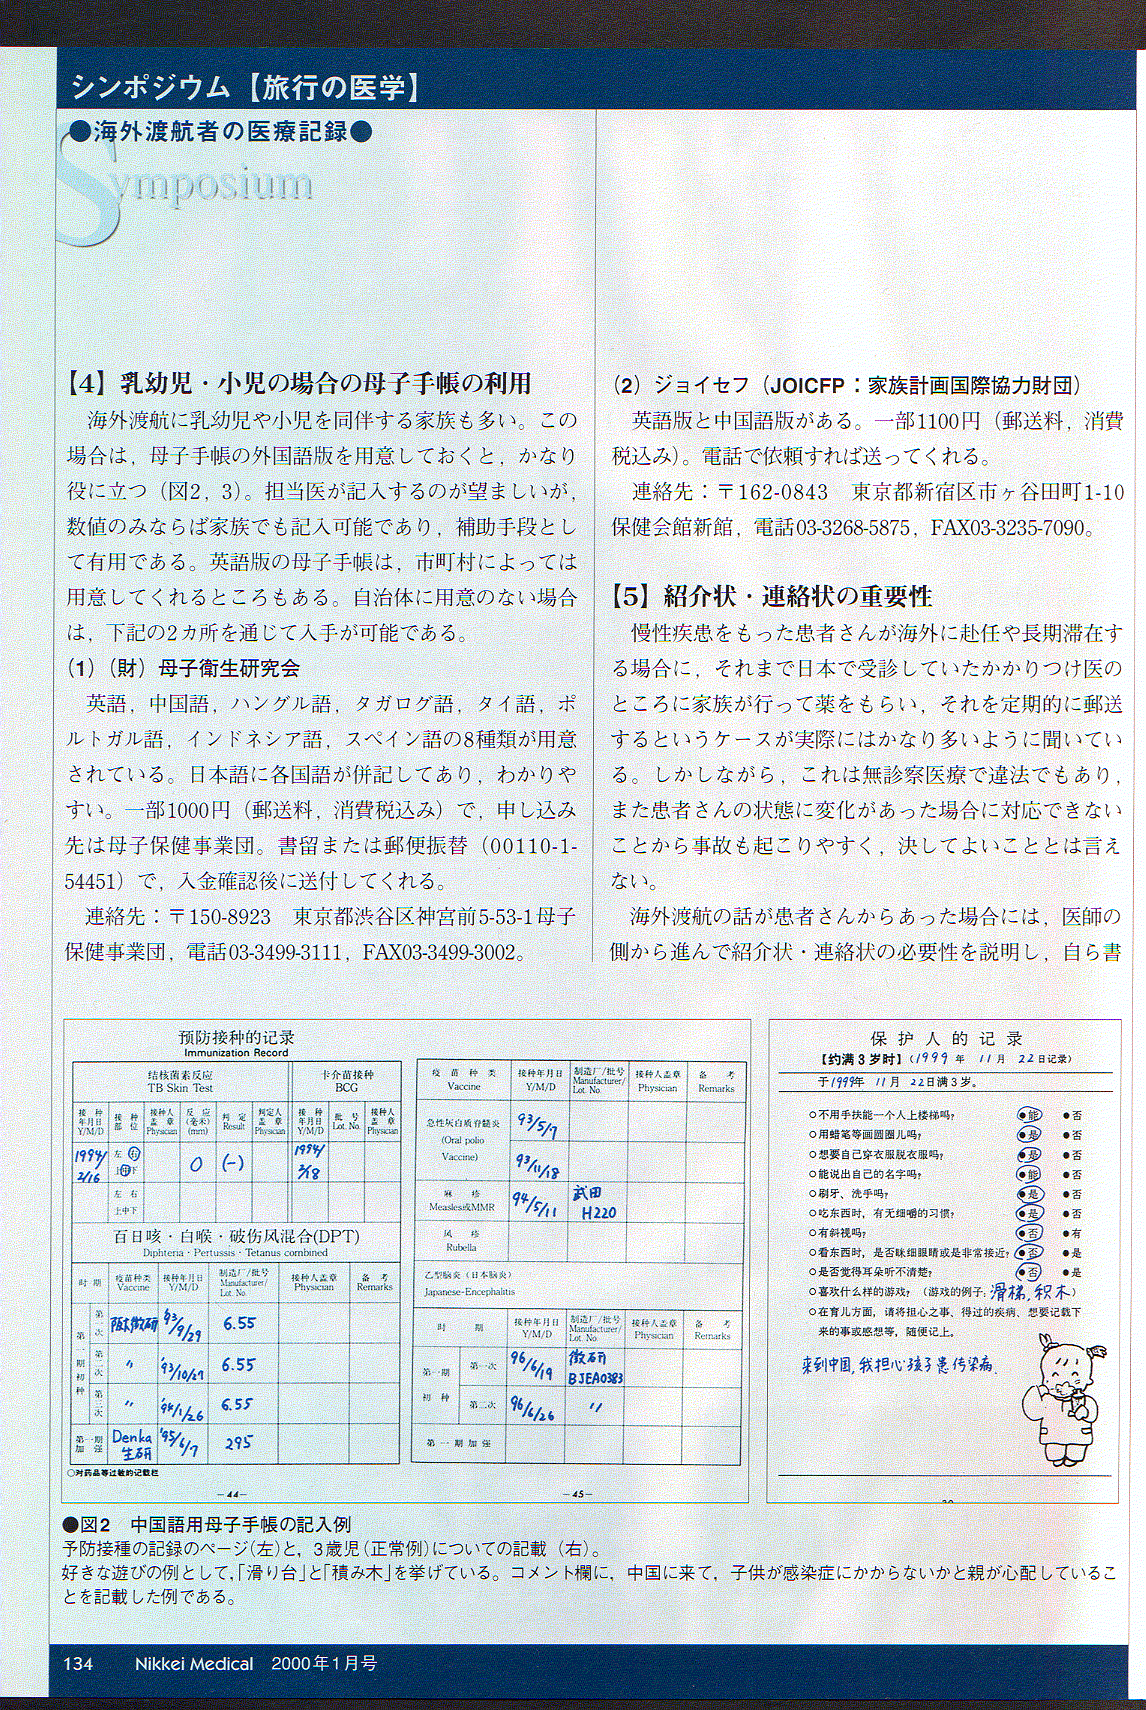 シンポジウム【旅行の医学】
●海外渡航者の医療記録●
Symposium
【4】乳幼児・小児の場合の母子手帳の利用
海外渡航に乳幼児や小児を同伴する家族も多い。この
場合は，母子手帳の外国語版を用意しておくと，かなり
役に立つ（図2，3）。担当医が記入するのが望ましいが，
数値のみならば家族でも記入可能であり，補助手段とし
て有用である。英語版の母子手帳は，市町村によっては
用意してくれるところもある。自治体に用意のない場合
は，下記の2ヵ所を通じて入手が可能である。
（1）（財）母子衛生研究会
英語，中国語，ハングル語，タガログ語，タイ語，ポ
ルトガル語，インドネシア語，スペイン語の8種類が用意
されている。日本語に各国語が併記してあり，わかりや
すい。一部1000円（郵送料，消費税込み）で，申し込み
先は母子保健事業団。書留または郵便振替（00110-1-
54451）で，入金確認後に送付してくれる。
連絡先：〒150-8923　東京都渋谷区神宮前5-53-1母子
保健事業団，電話03-3499-3111，FAX03-3499-3002。
（2）ジョイセフ（JOICFP：家族計画国際協力財団）
英語版と中国語版がある。一部1100円（郵送料，消費
税込み）。電話で依頼すれば送ってくれる。
連絡先：〒162-0843　東京都新宿区市ヶ谷田町1-10
保健会館新館，電話03-3268-5875，FAX03-3235-7090。
【5】紹介状・連絡状の重要性
慢性疾患をもった患者さんが海外に赴任や長期滞在す
る場合に，それまで日本で受診していたかかりつけ医の
ところに家族が行って薬をもらい，それを定期的に郵送
するというケースが実際にはかなり多いように聞いてい
る。しかしながら，これは無診察医療で違法でもあり，
また患者さんの状態に変化があった場合に対応できない
ことから事故も起こりやすく，決してよいこととは言え
ない。
海外渡航の話が患者さんからあった場合には，医師の
側から進んで紹介状・連絡状の必要性を説明し，自ら書
预防接种的记录
Immunization Record
结核菌素反应 卡介苗接种
TB Skin Test BCG
接种年月日 Y/M/D 接种部位 接种人盖章 Physician 反应（毫米）(mm) 判定 Result 判定人盖章 Physician 接种年月日 Y/M/D 批号 Lot. No. 接种人盖章 Physician
1994/2/16 左右 上中下 0 (-) 1994/2/18
左右
上中下
百日咳・白喉・破伤风混合(DPT)
Diphteria・Pertussis・Tetanus combined
时期 疫苗种类 Vaccine 接种年月日 Y/M/D 制造厂/批号 Manufacturer/Lot. No. 接种人盖章 Physician 备考 Remarks
第一期初种 第一次 阪大微研 '93/9/29 6.55
第二次 〃 '93/10/27 6.55
第三次 〃 '94/1/26 6.55
第一期加强 Denka生研 '95/6/7 295
○对药品等过敏的记载栏
—44—
疫苗种类 Vaccine 接种年月日 Y/M/D 制造厂/批号 Manufacturer/Lot. No. 接种人盖章 Physician 备考 Remarks
急性灰白质脊髓炎 (Oral polio Vaccine) 93/5/7
93/11/18
麻疹 Measles或MMR 94/5/11 武田 H220
风疹 Rubella
乙型脑炎（日本脑炎）
Japanese-Encephalitis
时期 接种年月日 Y/M/D 制造厂/批号 Manufacturer/Lot. No. 接种人盖章 Physician 备考 Remarks
第一期初种 第一次 96/6/19 微研 BJEA0383
第二次 96/6/26 〃
第一期加强
—45—
保护人的记录
【约满3岁时】（1999年 11月 22日记录）
于1999年 11月 22日满3岁。
○不用手扶能一个人上楼梯吗？ ●能 ●否
○用蜡笔等画圆圈儿吗？ ●是 ●否
○想要自己穿衣服脱衣服吗？ ●是 ●否
○能说出自己的名字吗？ ●能 ●否
○刷牙、洗手吗？ ●是 ●否
○吃东西时，有无细嚼的习惯？ ●是 ●否
○有斜视吗？ ●否 ●有
○看东西时，是否眯细眼睛或是非常接近？ ●否 ●是
○是否觉得耳朵听不清楚？ ●否 ●是
○喜欢什么样的游戏？（游戏的例子：滑梯，积木）
○在育儿方面，请将担心之事、得过的疾病、想要记载下
来的事或感想等，随便记上。
来到中国，我担心孩子患传染病.
●図2　中国語用母子手帳の記入例
予防接種の記録のページ（左）と，3歳児（正常例）についての記載（右）。
好きな遊びの例として，「滑り台」と「積み木」を挙げている。コメント欄に，中国に来て，子供が感染症にかからないかと親が心配しているこ
とを記載した例である。
134　Nikkei Medical　2000年1月号